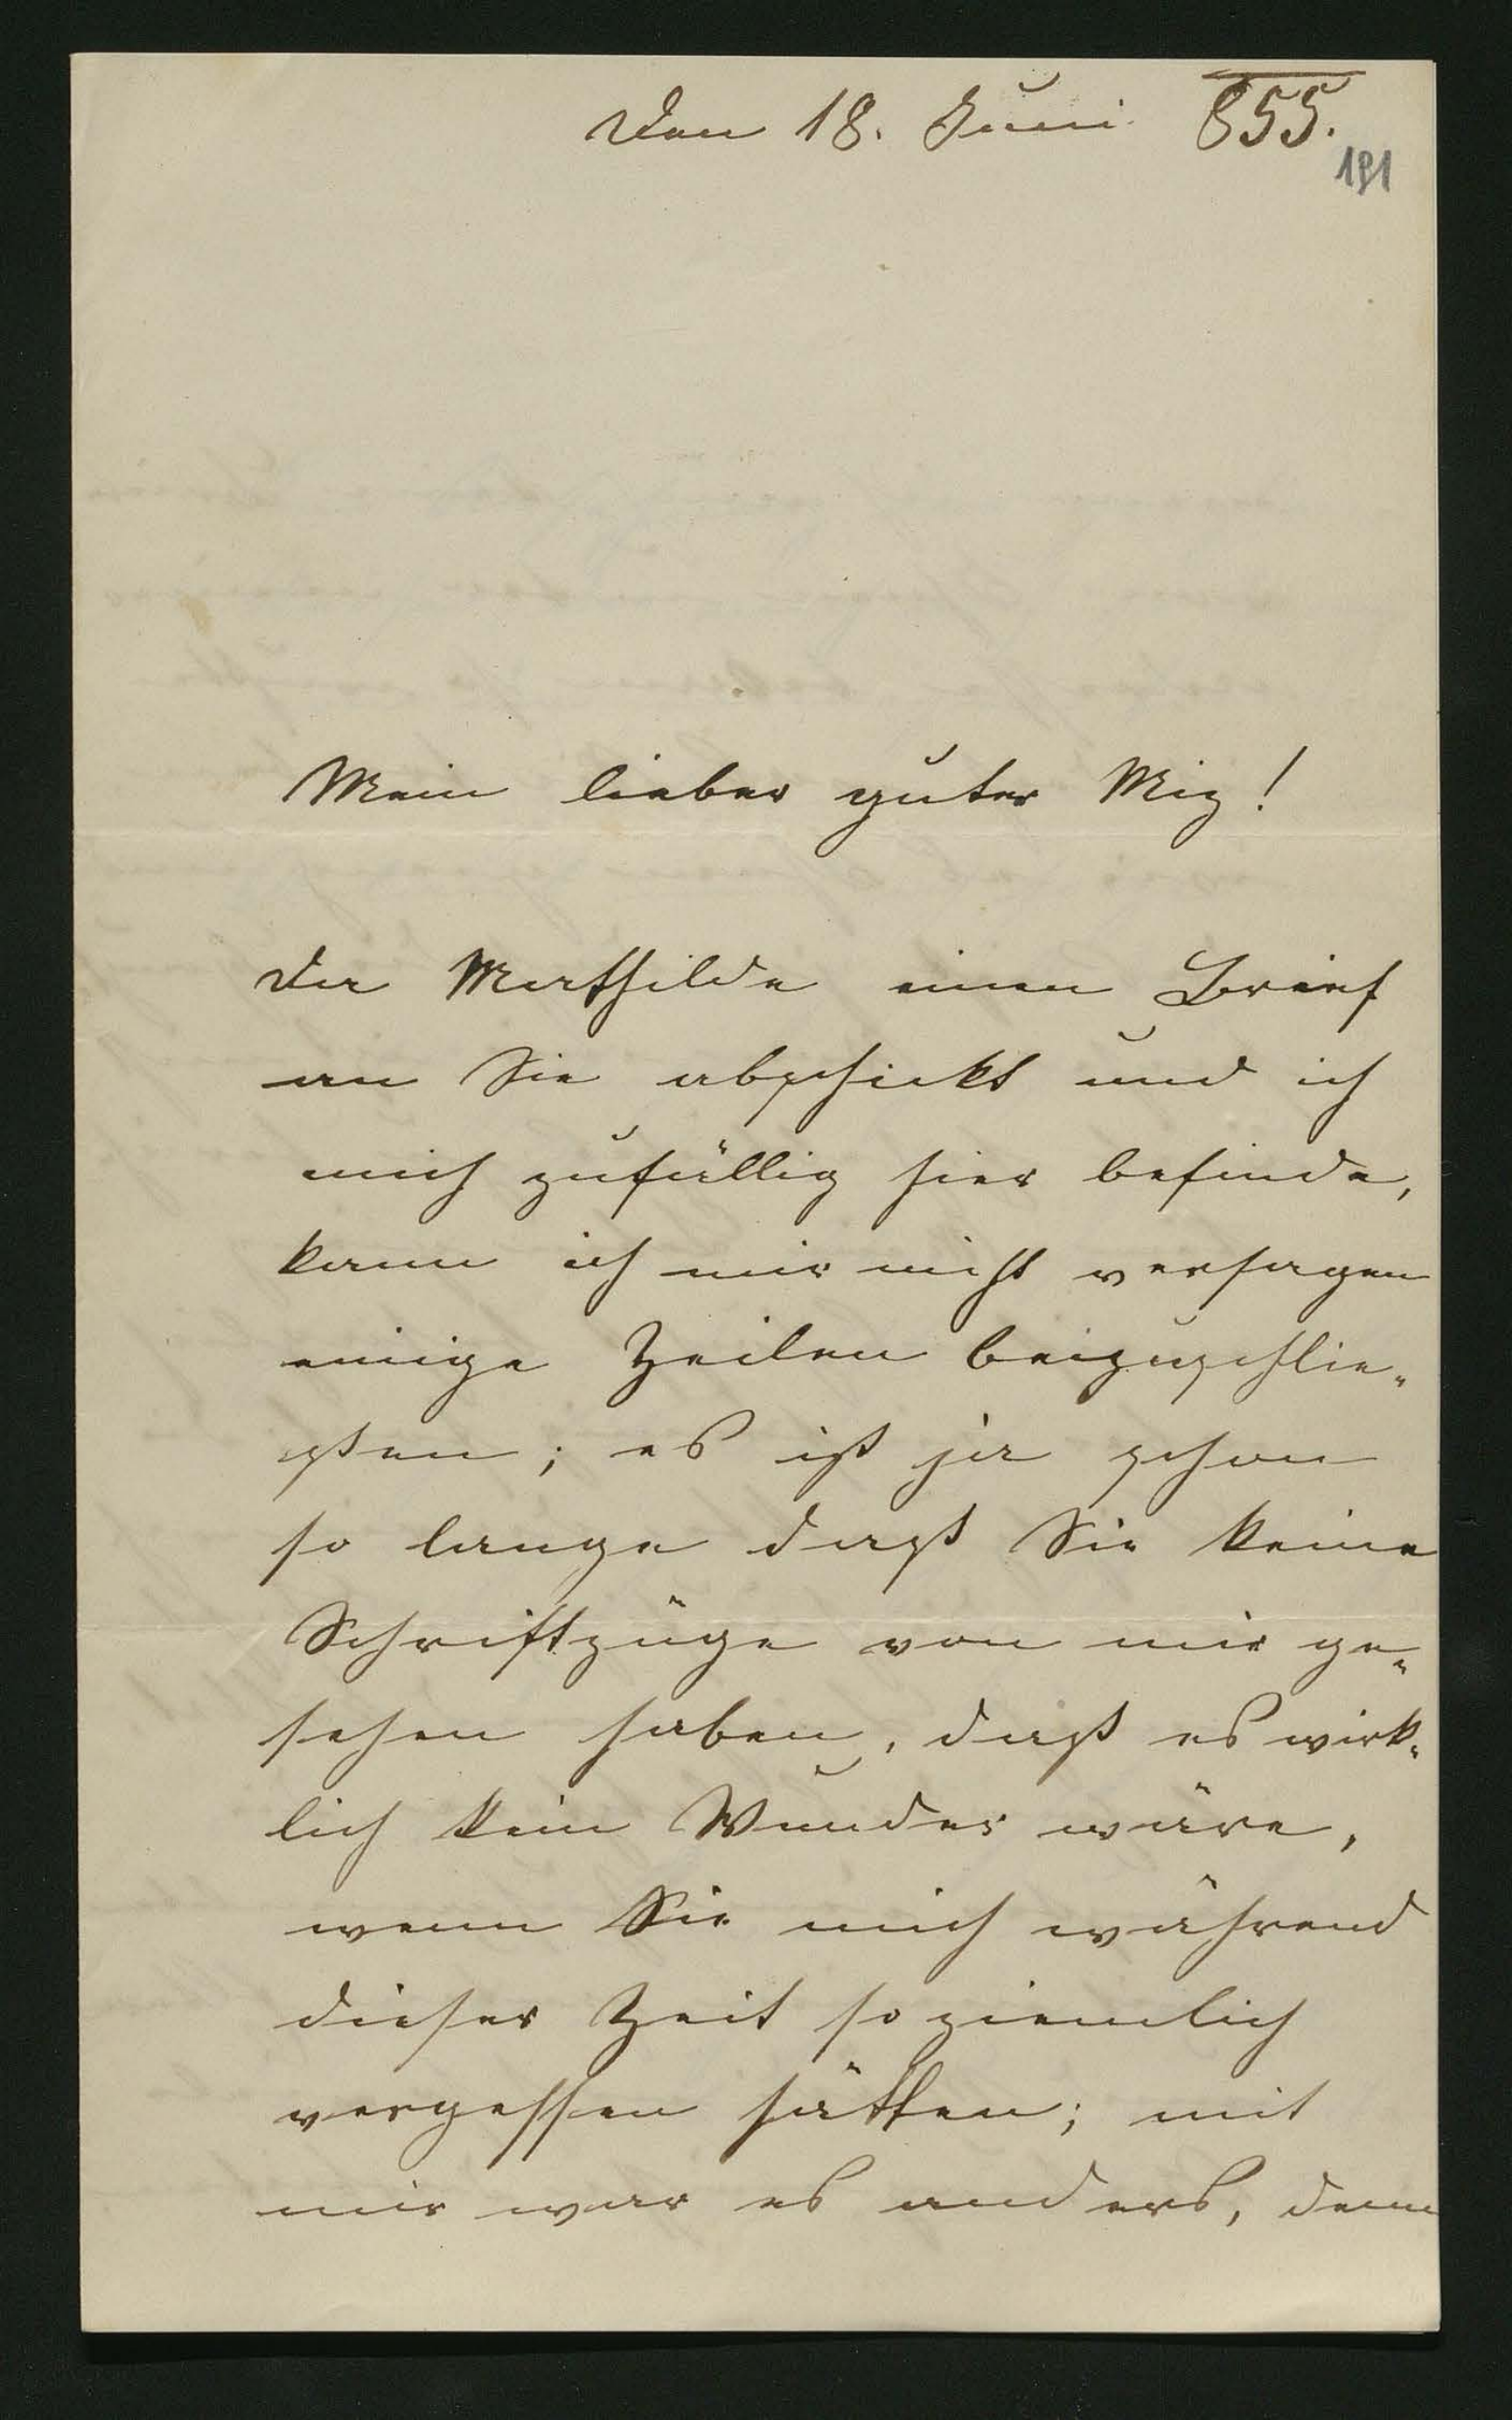 Den 18. Juni 855.
191
Mein lieber guter Mig!
Da Mathilde einen Brief
an Sie abschickt und ich
mich zufällig hier befinde,
kann ich mir nicht versagen
einige Zeilen beizuschlie-
ßen; es ist ja schon
so lange daß Sie keine
Schriftzüge von mir ge-
sehen haben, daß es wirk-
lich kein Wunder wäre,
wenn Sie mich während
dieser Zeit so ziemlich
vergessen hätten; mit
mir war es anders, denn